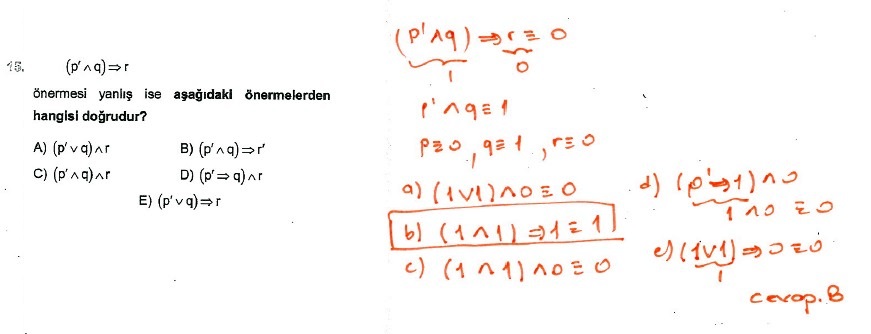 15. (p' ∧ q) ⇒ r
önermesi yanlış ise aşağıdaki önermelerden
hangisi doğrudur?
A) (p' ∨ q) ∧ r B) (p' ∧ q) ⇒ r'
C) (p' ∧ q) ∧ r D) (p' ⇒ q) ∧ r
E) (p' ∨ q) ⇒ r
(p' ∧ q) ⇒ r ≡ 0
1 0
p' ∧ q ≡ 1
p ≡ 0 , q ≡ 1 , r ≡ 0
a) (1 ∨ 1) ∧ 0 ≡ 0
b) (1 ∧ 1) ⇒ 1 ≡ 1
c) (1 ∧ 1) ∧ 0 ≡ 0
d) (p' ⇒ 1) ∧ 0
1 ∧ 0 ≡ 0
e) (1 ∨ 1) ⇒ 0 ≡ 0
1
cevap. B